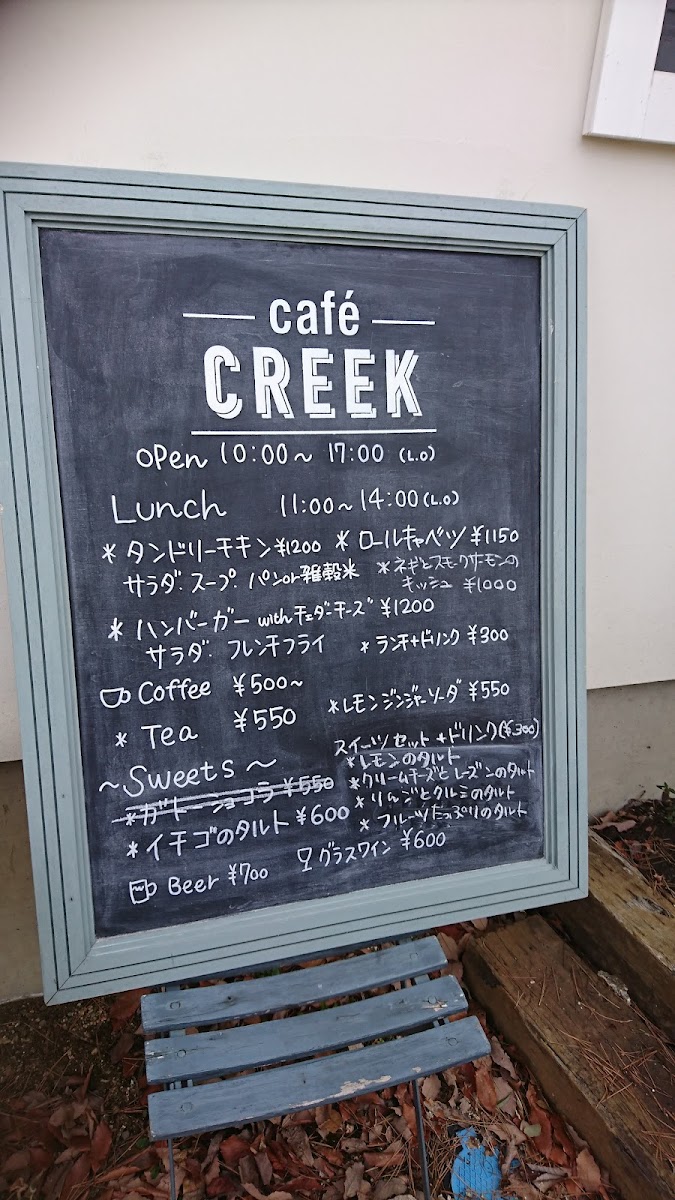 café
CREEK
open 10:00〜 17:00 (L.O)
Lunch 11:00〜14:00(L.O)
* タンドリーチキン ¥1200
サラダ. スープ. パンor雑穀米
* ロールキャベツ ¥1150
* ネギとスモークサーモンの
キッシュ ¥1000
* ハンバーガー withチェダーチーズ ¥1200
サラダ. フレンチフライ
* ランチ+ドリンク ¥300
Coffee ¥500〜
* Tea ¥550
* レモンジンジャーソーダ ¥550
〜Sweets〜
* ガトーショコラ ¥550
* イチゴのタルト ¥600
スイーツセット +ドリンク(¥300)
* レモンのタルト
* クリームチーズとレーズンのタルト
* りんごとクルミのタルト
* フルーツたっぷりのタルト
Beer ¥700
グラスワイン ¥600